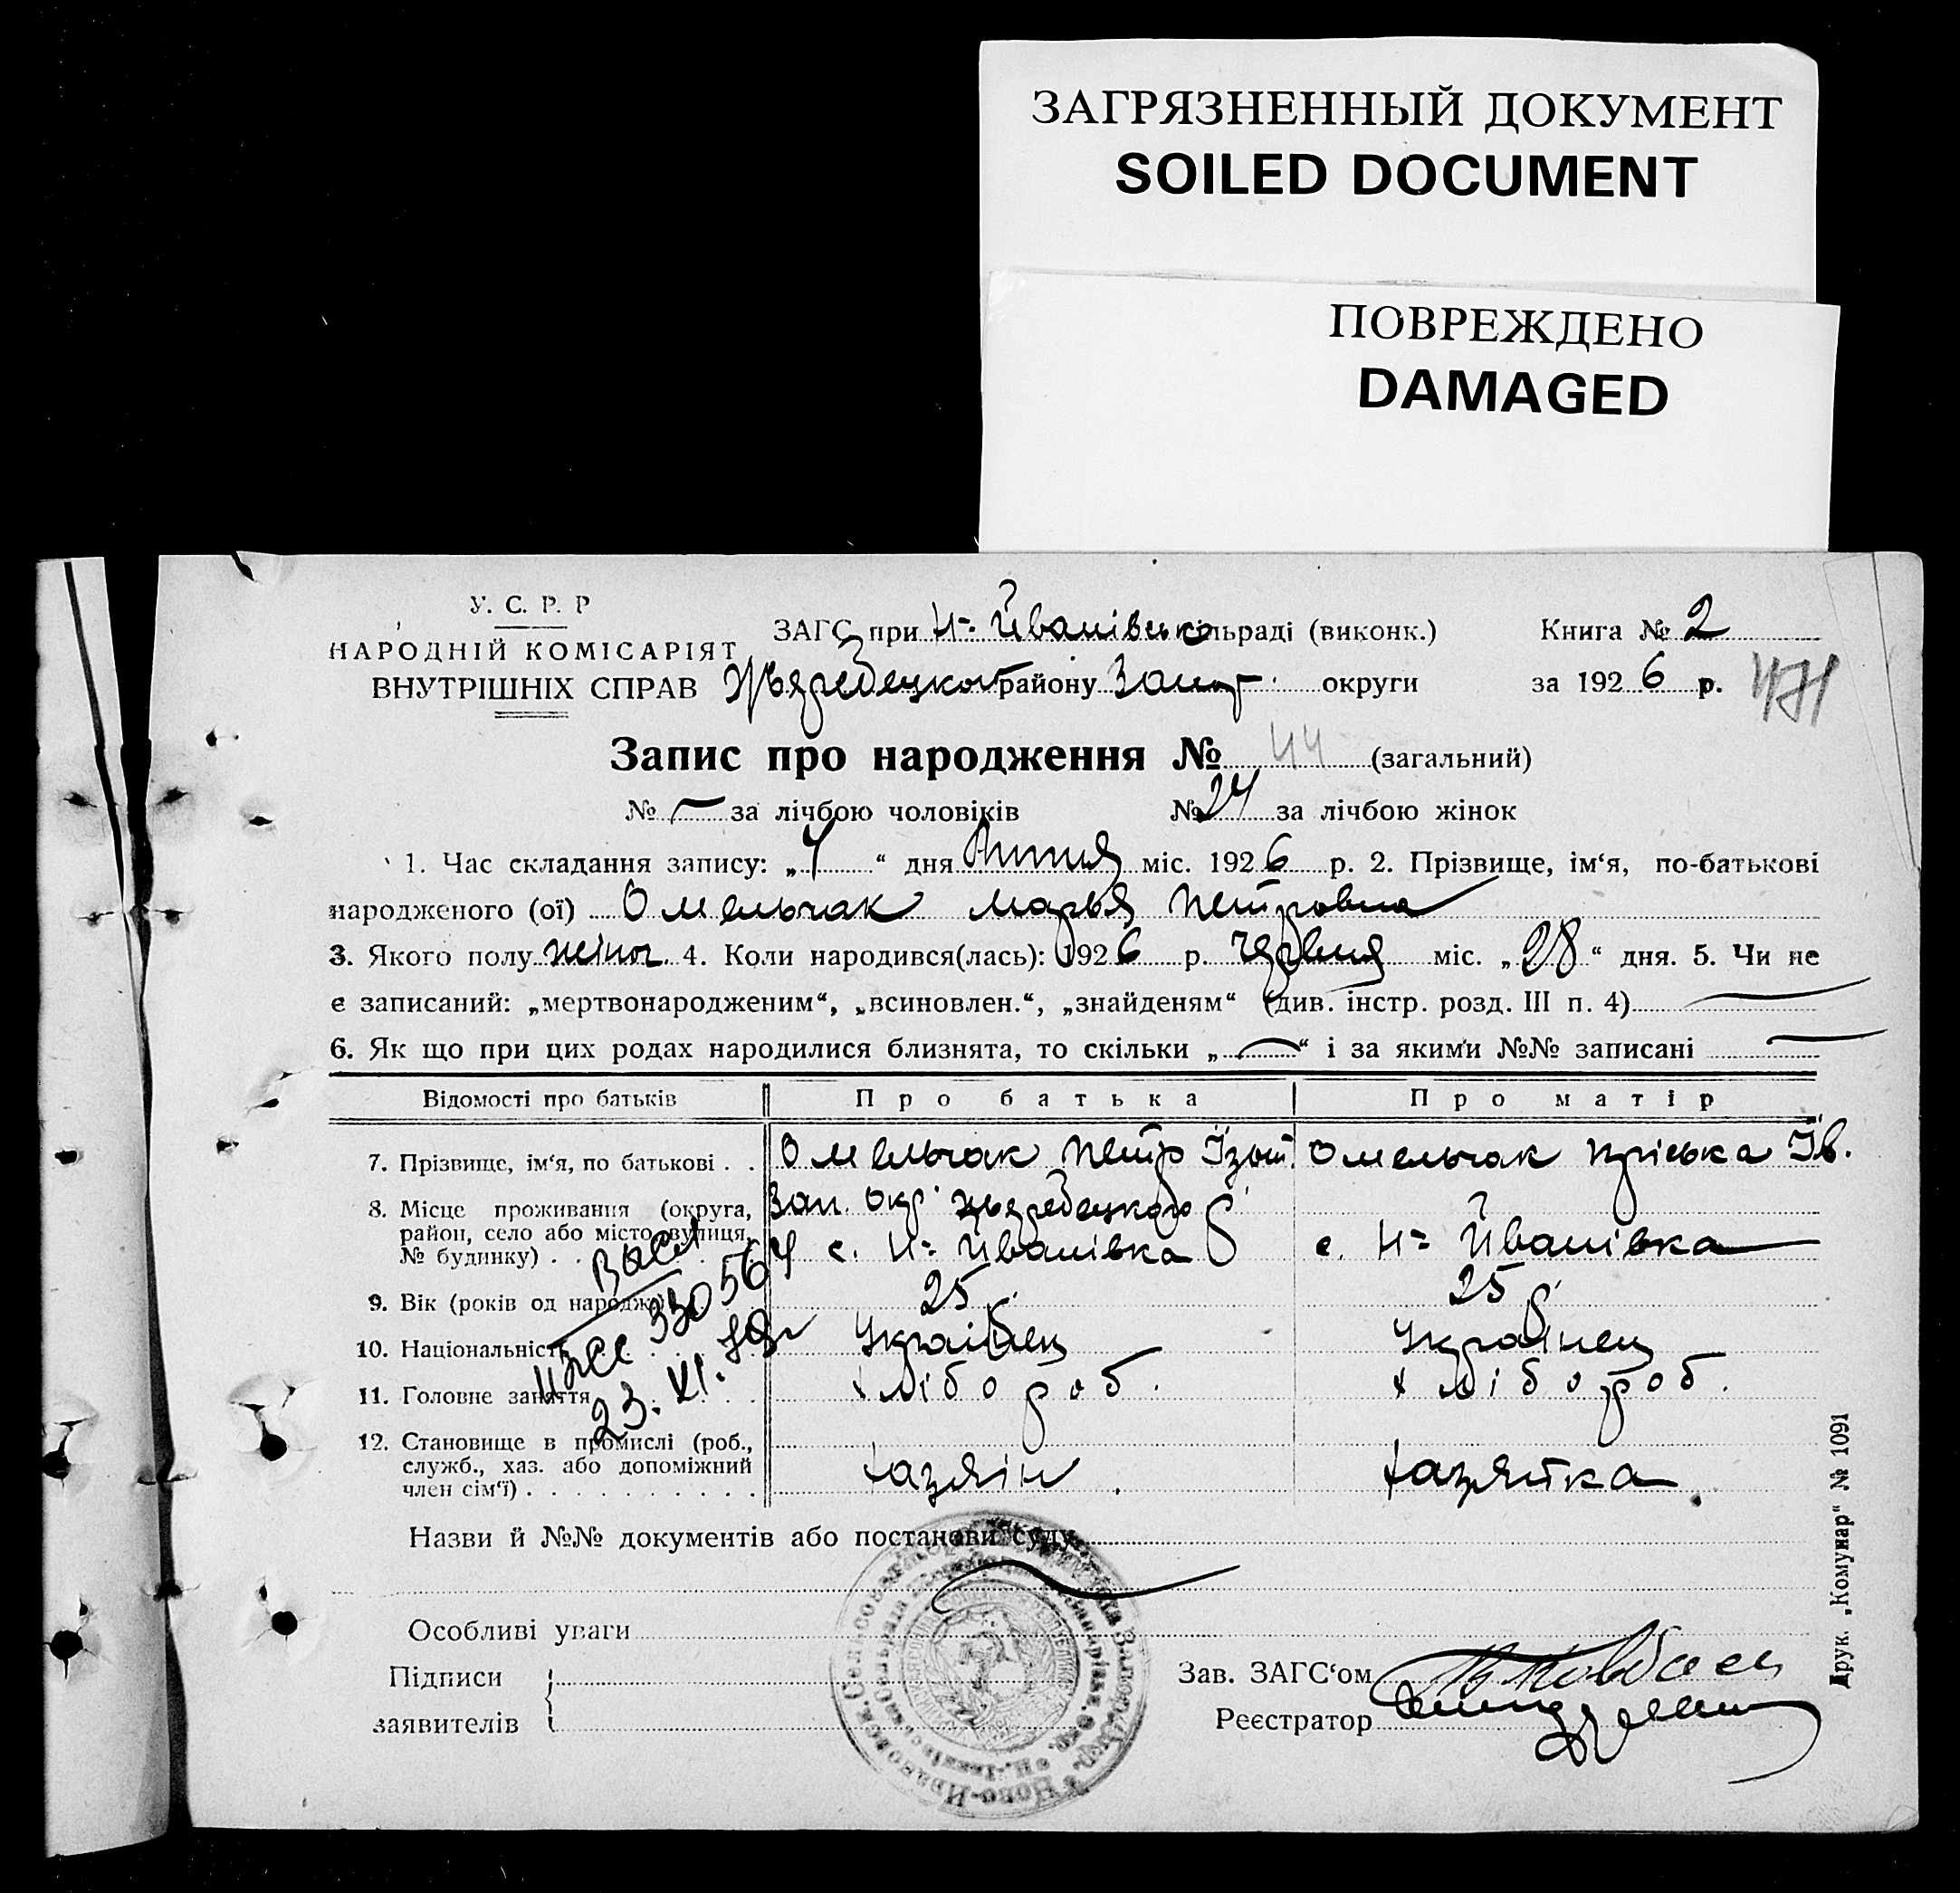 ЗАГРЯЗНЕННЫЙ ДОКУМЕНТ
SOILED DOCUMENT
ПОВРЕЖДЕНО
DAMAGED
У. С. Р. Р
НАРОДНІЙ КОМІСАРІЯТ
ВНУТРІШНІХ СПРАВ
ЗАГС при Н-Йванівсько сільраді (виконк.) Книга № 2
району Запор. округи за 1926 р. 471
Запис про народження № 44 (загальний)
№ — за лічбою чоловіків № 24 за лічбою жінок
1. Час складання запису: „4“ дня Липня міс. 1926 р. 2. Прізвище, ім‘я, по-батькові
народженого (ої) Омельчак Марья Петровна
3. Якого полу жіноч. 4. Коли народився(лась): 1926 р. червня міс. „28“ дня. 5. Чи не
є записаний: „мертвонародженим“, „всиновлен.“, „знайденям“ (див. інстр. розд. III п. 4) —
6. Як що при цих родах народилися близнята, то скільки „—“ і за якими №№ записані —
Відомості про батьків Про батька Про матір
7. Прізвище, ім‘я, по батькові . . Омельчак Петр Ізот. Омельчак Пріська Ів.
8. Місце проживання (округа, район, село або місто, вулиця, № будинку) . Зап. окр. с. Н-Йванівка с. Н-Йванівка
9. Вік (років од народж.) 25 р. 25 р.
10. Національність Українец Українец
11. Головне заняття хлібороб. хлібороб.
12. Становище в промислі (роб., служб., хаз. або допоміжний член сім‘ї) . хазяін. хазяйка.
33056
23. VI.
Назви й №№ документів або постанови суду
Особливі уваги
Підписи
заявителів
Зав. ЗАГС‘ом
Реєстратор
Друк. „Комунар“ № 1091